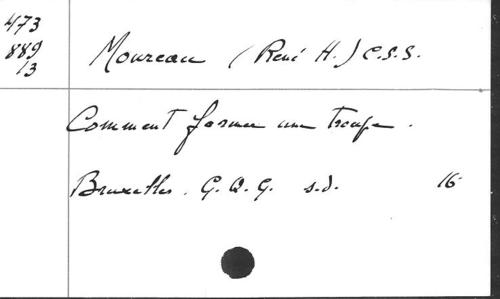 473
889
13
Moureau (René H.) C.S.S.
Comment former une troupe.
Bruxelles. G.Q.G. s.d. 16